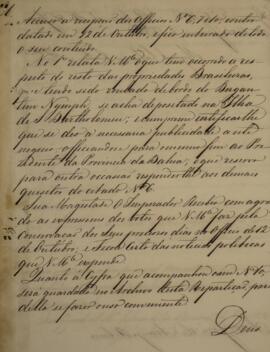 Accuso a recepção dos Officios Nº 6, 7 e 10, contr
datado em 22 de Outubro, e fico inteirado de todo
o seu conteudo.
No 1º relata V. Mce o que tem occorrido a res
peito do resto das propriedades Brasileiras,
que tendo sido roubado de bordo do Bergan
tim Nymph, se acha depositado na Ilha
de S. Bartholomeu; e cumpre certificar-lhe
que se deo a necessaria publicidade a este
negocio, officiando-se para o mesmo fim ao Pre
sidente da Provincia da Bahia; e que reservo
para outra occasião responder-lhe aos demais
quesitos do citado Nº 6.
Sua Magestade O Imperador Recebeu com agra
do as expressões dos votos que V. Mce faz pela
Conservação dos Seus preciosos dias no Officio de 12
de Outubro, e Ficou Certo das noticias politicas
que V. Mce
Quanto á Cyfra que acompanhou o seu Nº 10,
será guardada no Archivo desta Repartição para
della se fazer o uso conveniente.
Deus